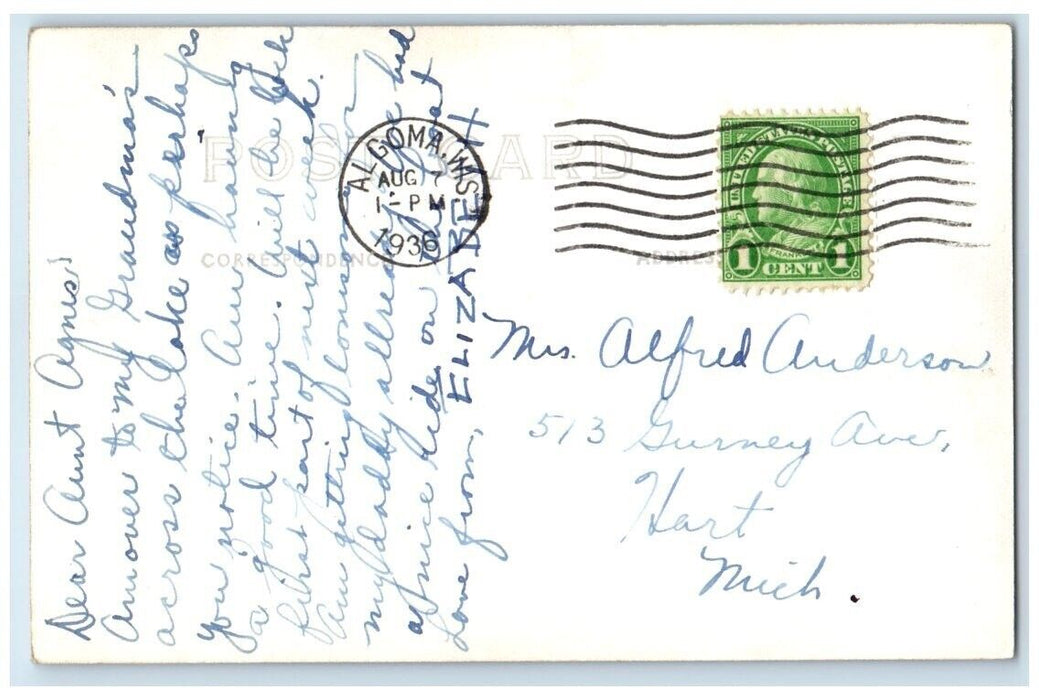 POST CARD
CORRESPONDENCE
ADDRESS
ALGOMA, WIS.
AUG 7
1-PM
1936
U.S. POSTAGE
FRANKLIN
1 CENT 1
Dear Aunt Agnes'
Am over to my Grandma's
across the lake as perhaps
you notice. Am having
a good time. Will be back
first part of next week.
Am getting lonesome for
my daddy allready. We had
a nice ride on the boat
Love from, ELIZABETH
Mrs. Alfred Anderson
513 Gurney Ave,
Hart
Mich.